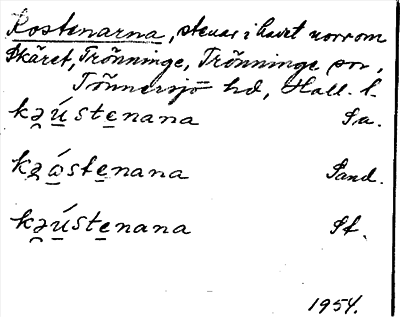 Kostenarna, stenar i havet norr om
Skäret, Trönninge, Trönninge sn,
Tönnersjö hd, Hall. l.
kə̯ú̱ste̱nana Su.
kə̯ó̱ste̱nana Sand.
kə̯ú̱ste̱nana St.
1954.